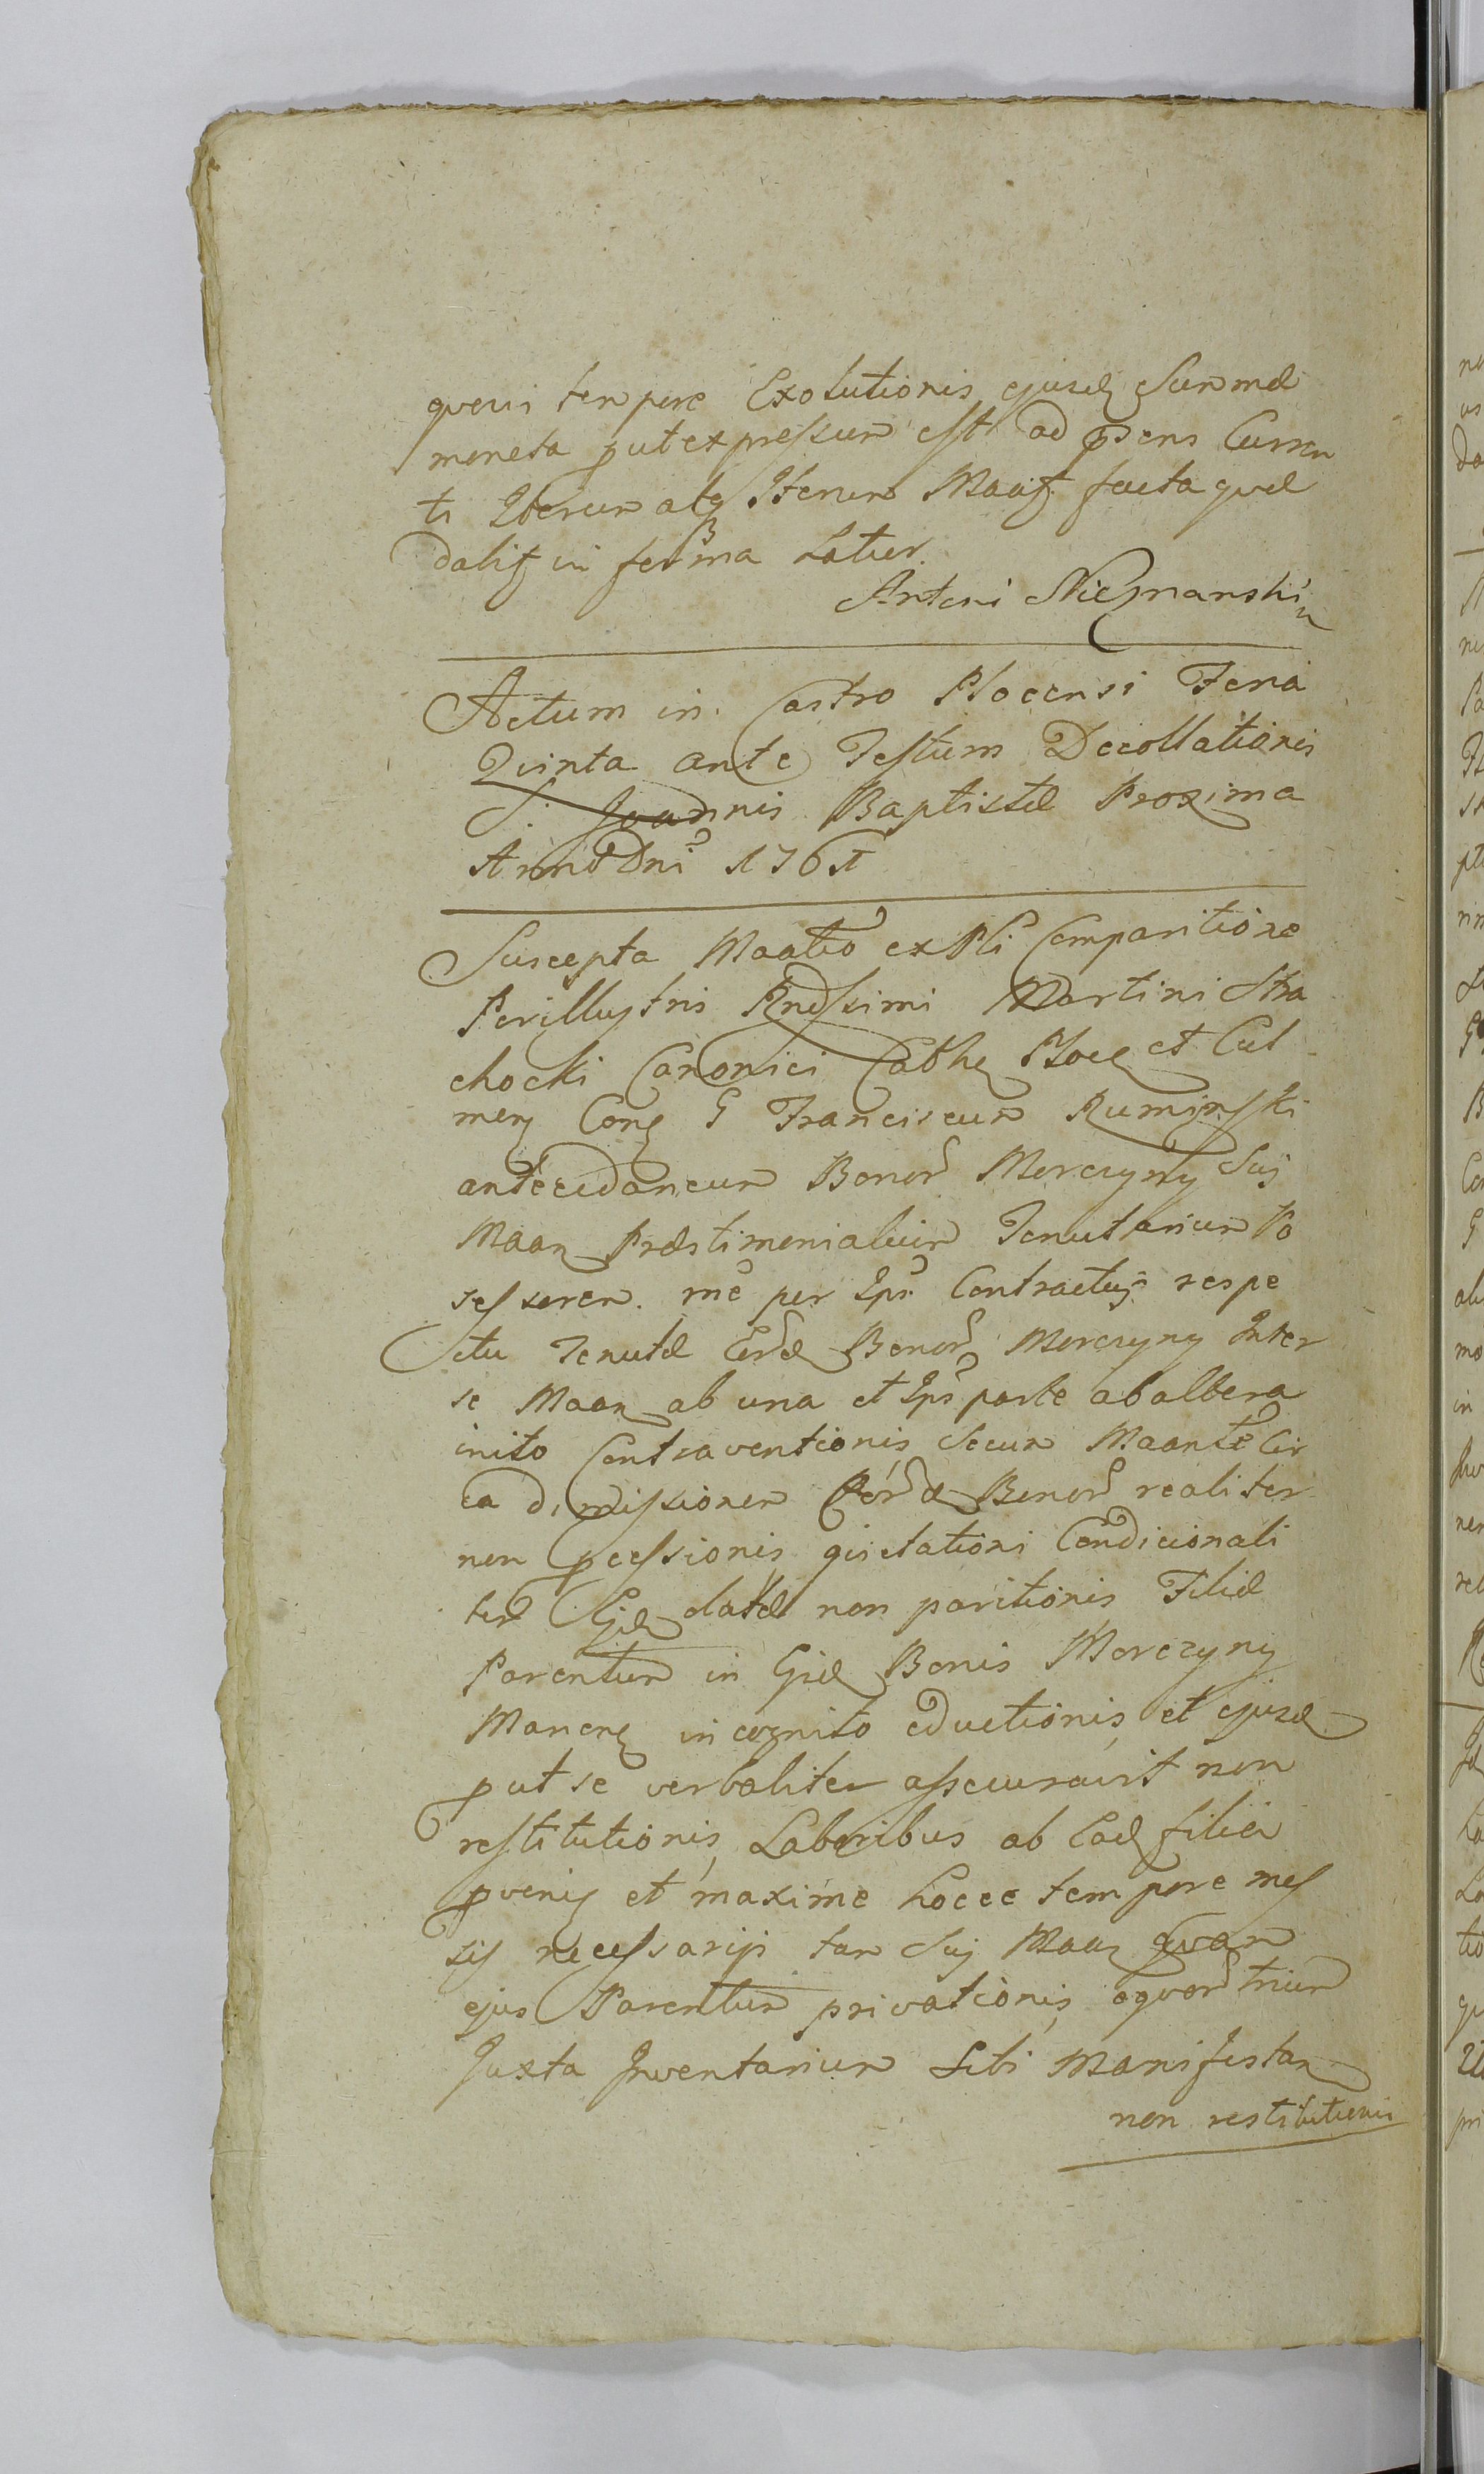 quevis tempore Exolutionis ejusd Summæ
moneta put expressum est ad psens Curren
ti Iterum atq Iterum Maat facta qvæ
dalis in forma Latius
Antoni Nieznanski
Actum in Castro Plocensi Feria
Qvinta ante Festum Decollationis
S. Joannis Baptistæ Proxima
Anno Dni 1761
Suscepta Maatio ex Pli Comparitione
Perillustris Rndssimi Martini Stra
chocki Canonici Cathe Ploce et Cul
men Cong G Franciscum Rumiński
antecedaneum Bonor Morczyny Suj
Maan Præstimonialium Tenutarium Po
sessorem me per Ipm Contractuj respe
ctu Tenutæ Eord Bonor Morczyny Inter
se Maan ab una et Ipm parte ab altera
inito Contraventionis Secum Maante Cir
ca dimissionem Eord Bonor realiter
non pcessionis qvietationi Condicionali
ter Eid datæ non paritionis Filiæ
Parentum in Gisd Bonis Morczyny
Manen incognito eductionis et ejusd
put se verbaliter assecuravit non
restitutionis Laboribus ab Ead filia
pveniç et maxime hocce tempore mes
sis necessarijs tam Suj Maan qvam
ejus Parentum privationis eqvor trium
Juxta Inventarium Sibi Manifestan
non restitutionis